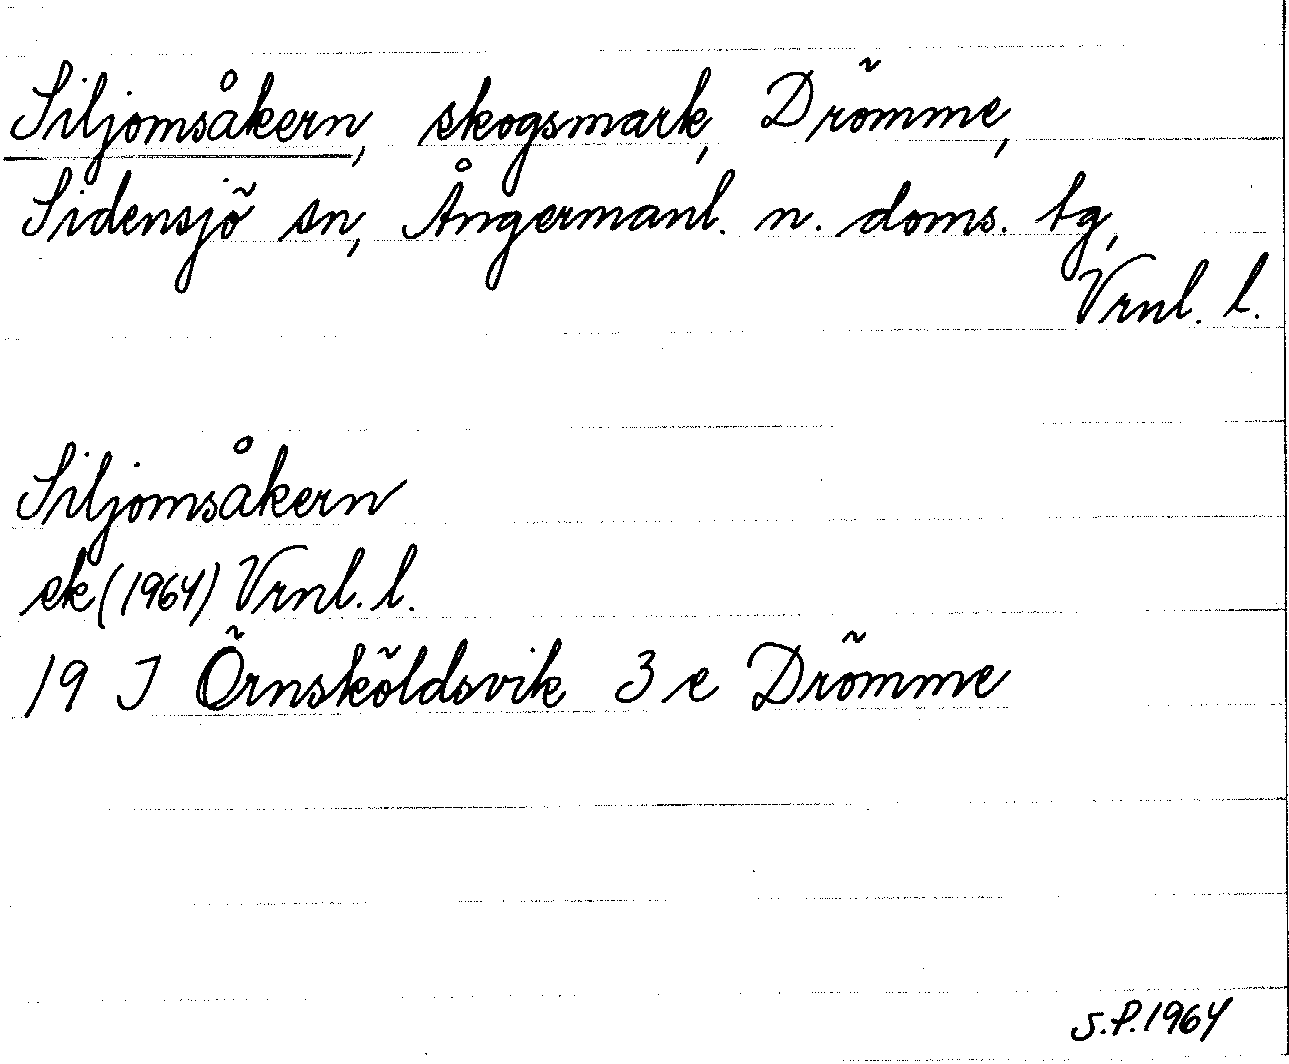 Siljomsåkern, skogsmark, Drömme,
Sidensjö sn, Ångermanl. n. doms. tg,
Vrnl. l.
Siljomsåkern
ek (1964) Vrnl. l.
19 J Örnsköldsvik 3 e Drömme
S.P. 1964